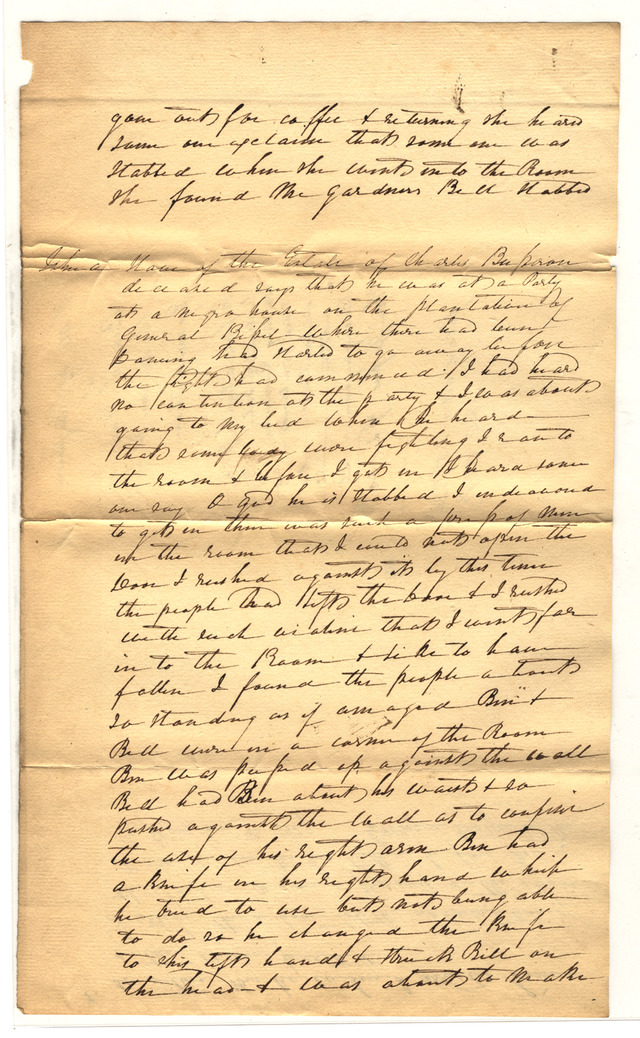 gone out for coffee & returning she heard
some one exclaim that some one was
stabbed when she went in to the Room
she found the gardners Bell stabbed
a Slave of the Estate of Charles
deceased says that he was at a Party
at a negro house on the plantation of
General where there had been
Dancing had started to go away before
the fight had commenced. I had heard
no contention at the party & I was about
going to my bed when he heard
that some body were fighting I ran to
the room & before I got in I heard some
one say O god he is stabbed I endeavored
to get in there was such a press of Men
in the room that I could not open the
Door I rushed against it by this time
the people had left the Door & I rushed
with such violence that I went far
in to the Room & like to have
fallen I found the people about
so standing as if amazed Ben &
Bell were in a corner of the Room
Ben was up against the wall
Bell had Ben about his waist & so
pushed against the wall as to confine
the use of his right arm Ben had
a Knife in his right hand which
he tried to use but not being able
to do so he changed the Knife
to his left hand & struck Bill on
the head & was about to make